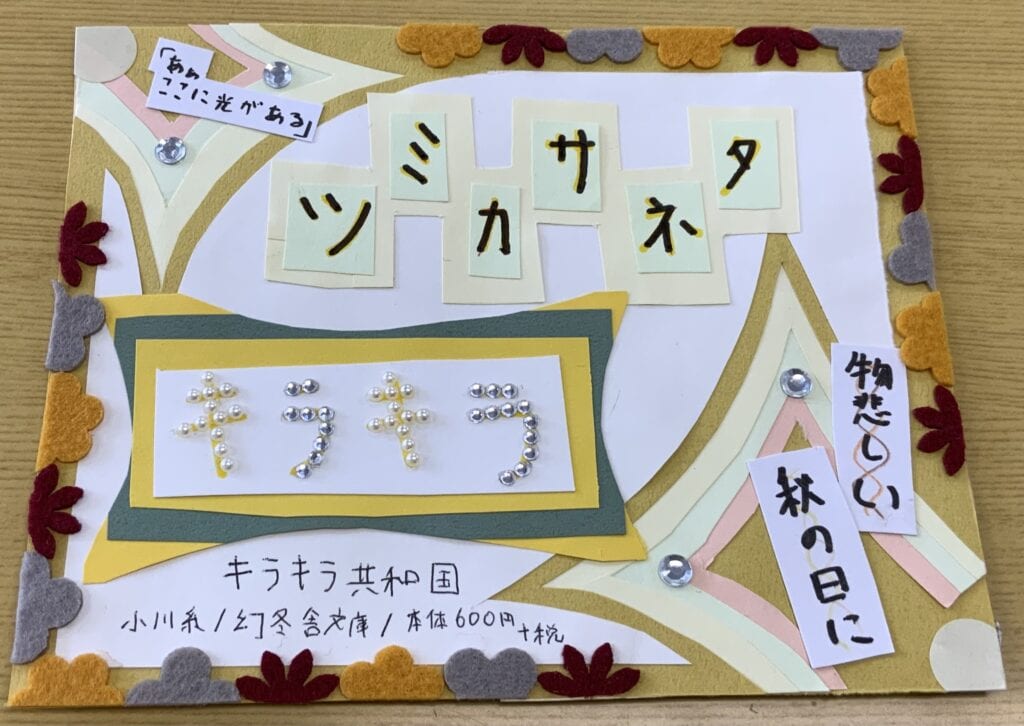 「あぁ
ここに光がある」
ツミカサネタ
キラキラ
物悲しい
秋の日に
キラキラ共和国
小川糸/幻冬舎文庫/本体600円+税